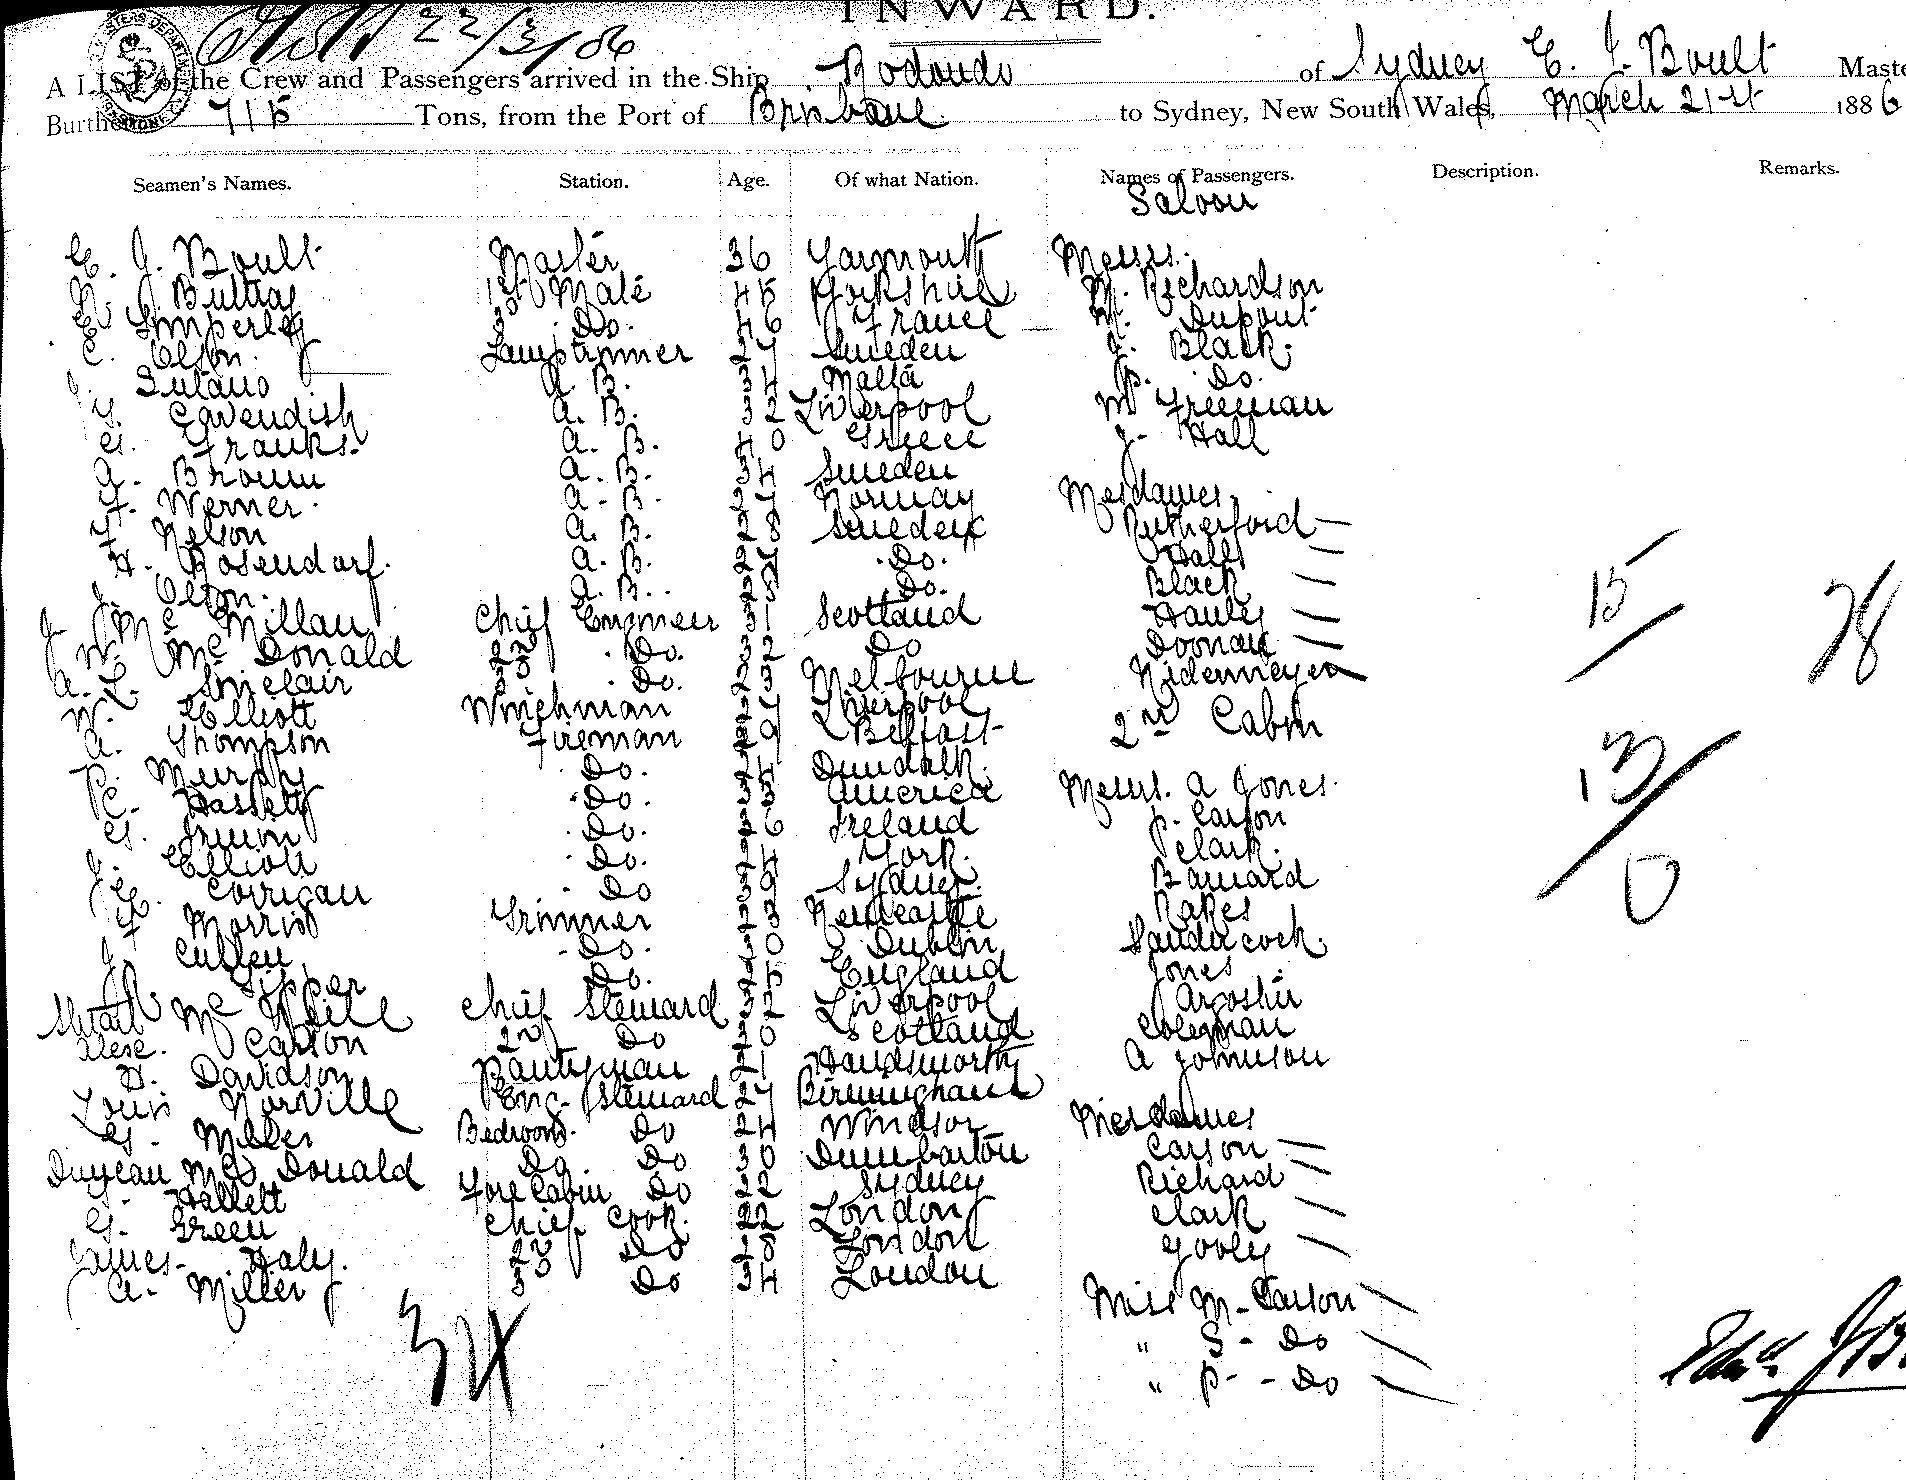 INWARD.
22/3/86
A LIST of the Crew and Passengers arrived in the Ship Rodondo of Sydney E. J. Boult Maste
Burthen 715 Tons, from the Port of Brisbane to Sydney, New South Wales, March 21st 1886
Seamen's Names. Station. Age. Of what Nation. Names of Passengers. Description. Remarks.
Saloon
E. J. Boult Master 36 Yarmouth Messrs.
1st Mate 45 Yorkshire Richardson
2nd Do. 46 France Dupont
C. Olson. Lamptrimmer 27 Sweden J. Black.
A. B. 34 Malta P. Do.
Cavendish A. B. 32 Liverpool M Freeman
G. Franks. A. B. 40 Greece J. Hall
A. Brown A. B. 34 Sweden
F. Werner. A. B. 27 Norway Mesdames
Nelson A. B. 28 Sweden Rutherford
H. Rosendorf. A. B. Do. Hall
J. Olson. A. B. Do. Black
J. Mc Millan Chief Engineer Scotland Hanley
W. Mc Donald 2nd Do. 32 Do Doonan
A. L. Sinclair 3rd Do. 23 Melbourne Nidermeyer
W. Elliott Winchman Liverpool 2nd Cabin
A. Thompson Fireman 29 Belfast
P. Murphy Do. Dundalk.
C. Hassett Do. America Messrs. A Jones.
G. Irwin Do. Ireland P. Carson
J. Elliott Do. York. Clark.
E. Corrigan Do Sydney. Barnard
F Morris Trimmer Newcastle Rakes
J Cullen Do. Dublin Sandercock.
Do. England Jones
Stuart Mc Neill Chief Steward 32 Liverpool
Alexr. Carson 2nd Do 20 Scotland Coleman
H. Davidson Pantryman 21 Handsworth A Johnson
Louis Norville Eng. Steward 27 Birmingham
G. Miller Bedroom. Do 24 Windsor Mesdames
Duncan Mc Donald Do. Do 30 Dumbarton Carson
G. Hallett Fore Cabin Do 22 Sydney Richard
G. Green Chief Cook. 22 London Clark
James Haly. 2nd Do 28 London Gooly
A. Miller 3rd Do 34 London
Miss M. Carson
" S - Do
" P - - Do
15
78
13
0
Edwd